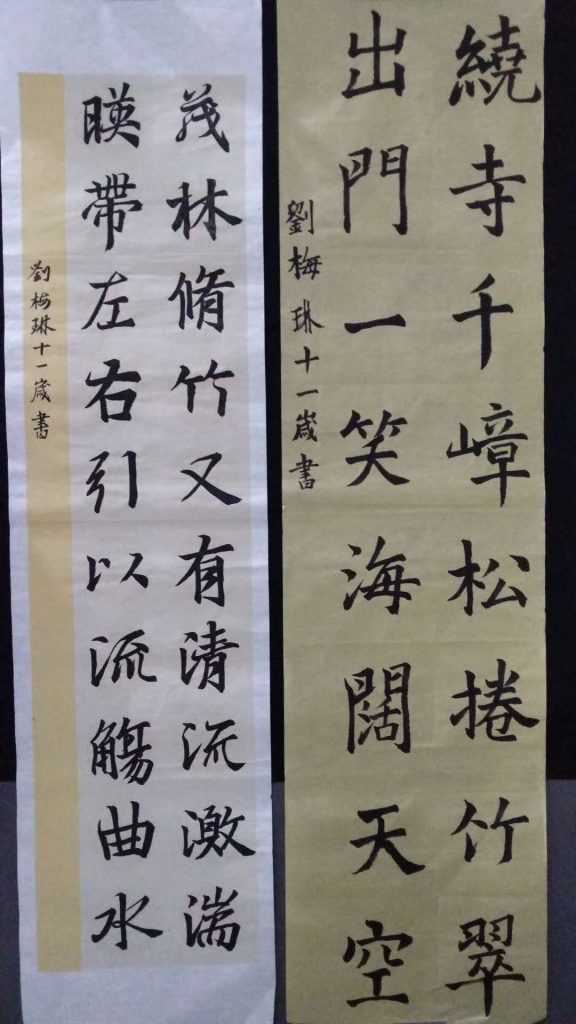 繞寺千嶂松捲竹翠
出門一笑海闊天空
劉梅琳十一嵗書
茂林脩竹又有清流激湍
暎帶左右引以流觴曲水
劉梅琳十一嵗書